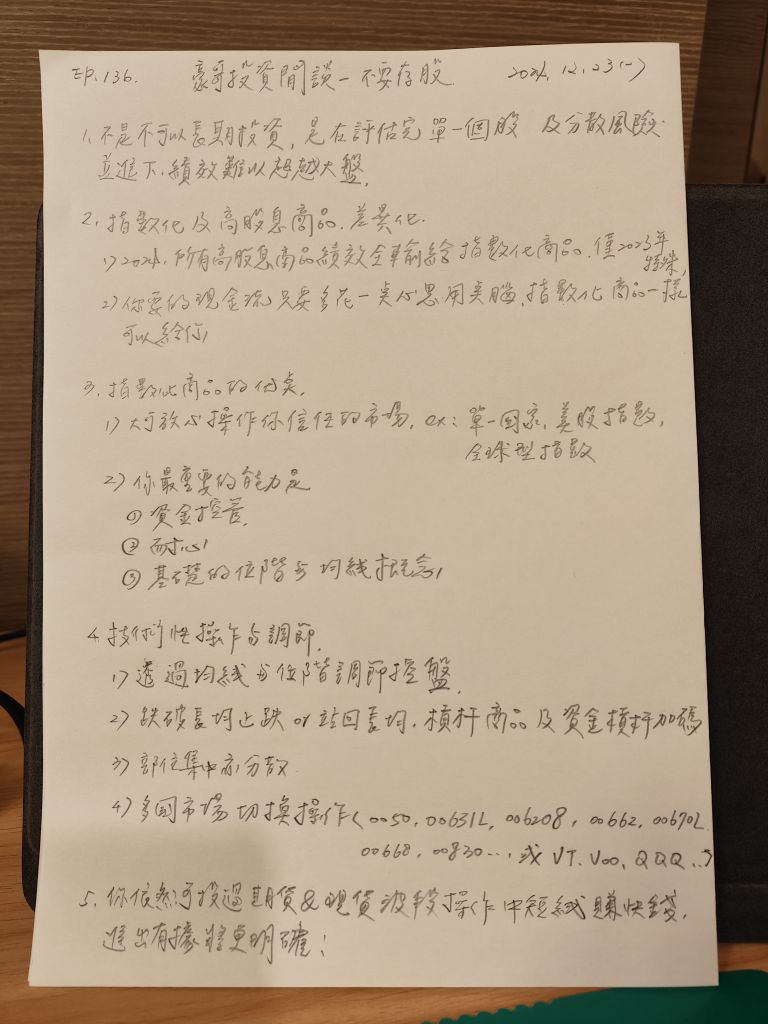 EP.136. 豪哥投資閒談－不要存股 2024.12.23(一)
1. 不是不可以長期投資, 是在評估完單一個股 及分散風險
並進下, 績效難以超越大盤.
2. 指數化及高股息商品. 差異化.
1) 2024. 所有高股息商品績效全輸給指數化商品. 僅2023年
特殊,
2) 你要的現金流只要多花一点心思用夾腦, 指數化商品一樣
可以給你!
3. 指數化商品的优点.
1) 大可放心操作你信任的市場. ex: 單一国家, 美股指數,
全球型指數
2) 你最重要的能力是
① 資金控管.
② 耐心!
③ 基礎的位階与均線概念!
4. 技術性操作与調節.
1) 透過均線与位階調節控盤.
2) 跌破長均止跌 or 站回長均. 槓杆商品及資金槓杆加碼
3) 部位集中而分散.
4) 多国市場切換操作(0050, 00631L, 006208, 00662, 00670L.
00668, 00830..., 或 VT. VOO, QQQ..)
5. 你依然可投過期貨&現貨波段操作中短線賺快錢.
進出有據將更明確!